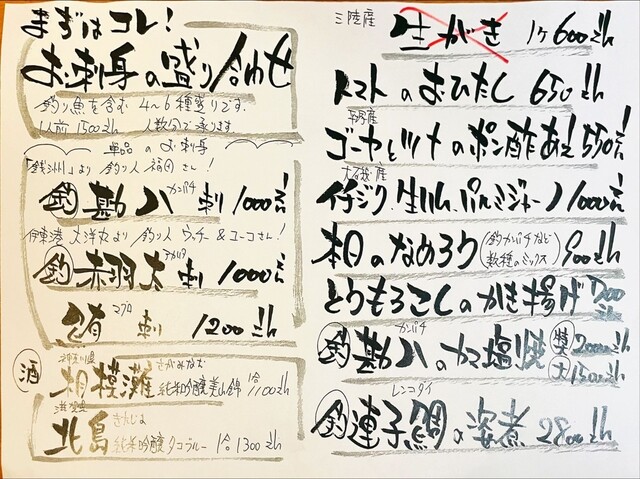 まずはコレ!
お刺身の盛り合わせ
釣り魚を含む 4〜6種盛りです。
1人前 1500えん 人数分で承ります
単品のお刺身
「銭洲」より 釣り人 福田さん!
釣 勘八 カンパチ 刺 1000えん
伊東港 大洋丸より 釣り人 ウッチー&ユーコさん!
釣 赤羽太 アカハタ 刺 1000えん
鮪 マグロ 刺 1200えん
酒
神奈川県
相模灘 さがみなだ 純米吟醸 美山錦 1合 1100えん
滋賀県
北島 きたじま 純米吟醸 タコブルー 1合 1300えん
三陸産 生がき 1ケ 600えん
トマトのおひたし 650えん
ゴーヤとツナのポン酢あえ 550えん
イチジク、生ハム、パルミジャーノ 1000えん
本日のなめろう (釣カンパチなど 数種のミックス) 900えん
とうもろこしのかき揚げ 700えん
カンパチ
釣 勘八のカマ塩焼 2000えん
大 1500えん
レンコダイ
釣 連子鯛の姿煮 2800えん